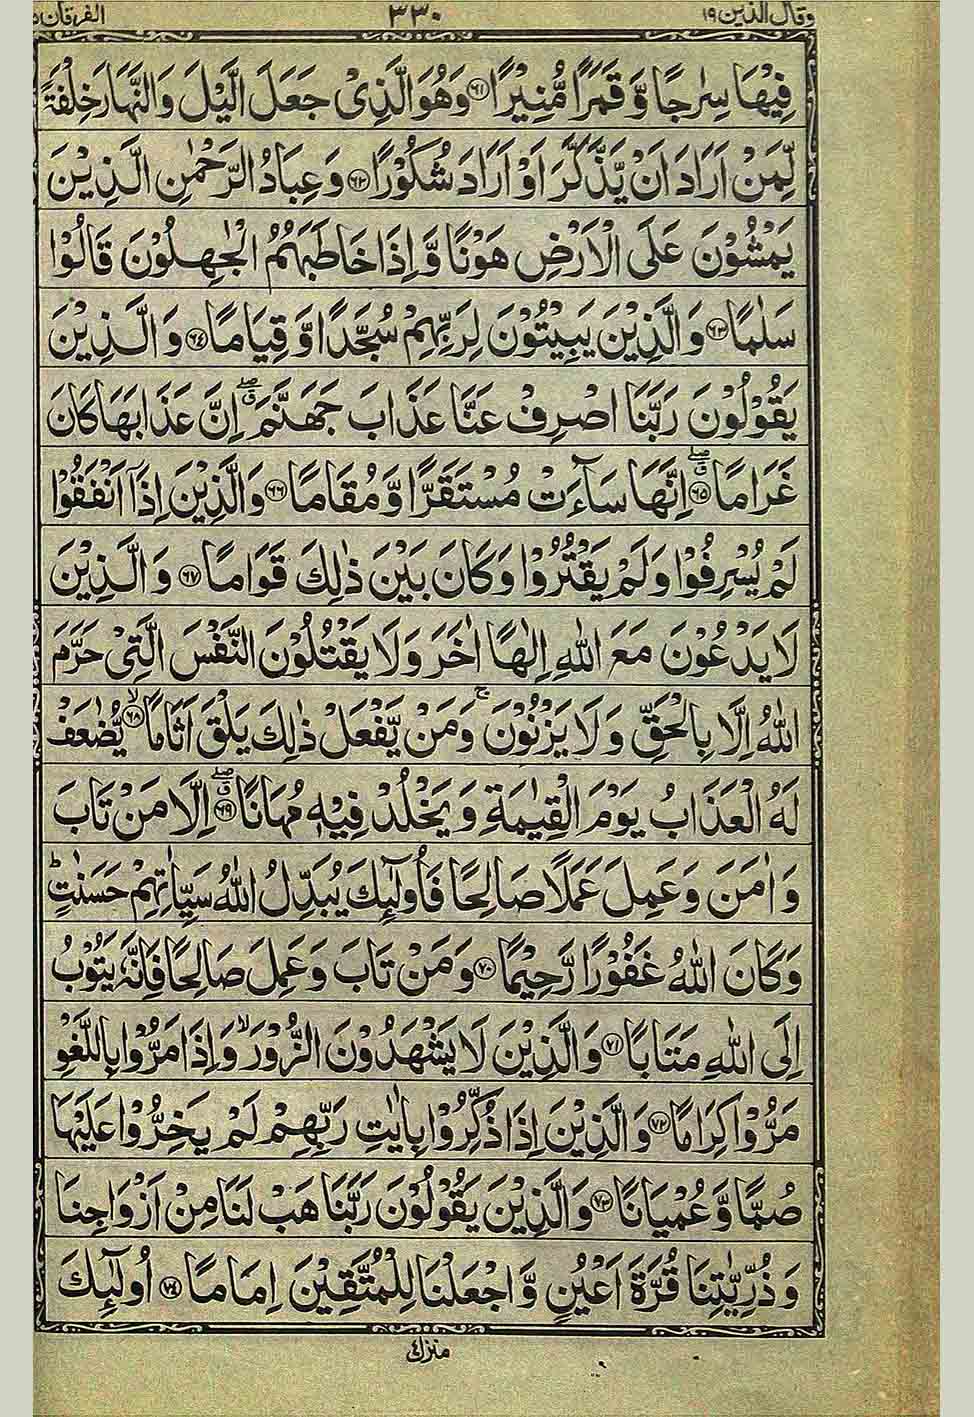 وقال الذین ١٩ ٣٣٠ الفرقان
فِیْهَا سِرٰجًا وَّ قَمَرًا مُّنِیْرًا ﴿٦١﴾ وَهُوَ الَّذِیْ جَعَلَ الَّیْلَ وَالنَّهَارَ خِلْفَةً
لِّمَنْ اَرَادَ اَنْ یَّذَّكَّرَ اَوْ اَرَادَ شُكُوْرًا ﴿٦٢﴾ وَ عِبَادُ الرَّحْمٰنِ الَّذِیْنَ
یَمْشُوْنَ عَلَی الْاَرْضِ هَوْنًا وَّ اِذَا خَاطَبَهُمُ الْجٰهِلُوْنَ قَالُوْا
سَلٰمًا ﴿٦٣﴾ وَ الَّذِیْنَ یَبِیْتُوْنَ لِرَبِّهِمْ سُجَّدًا وَّ قِیَامًا ﴿٦٤﴾ وَ الَّذِیْنَ
یَقُوْلُوْنَ رَبَّنَا اصْرِفْ عَنَّا عَذَابَ جَهَنَّمَ ۖق اِنَّ عَذَابَهَا كَانَ
غَرَامًا ﴿٦٥﴾ۖق اِنَّهَا سَآءَتْ مُسْتَقَرًّا وَّ مُقَامًا ﴿٦٦﴾ وَالَّذِیْنَ اِذَاۤ اَنْفَقُوْا
لَمْ یُسْرِفُوْا وَ لَمْ یَقْتُرُوْا وَ كَانَ بَیْنَ ذٰلِكَ قَوَامًا ﴿٦٧﴾ وَ الَّذِیْنَ
لَا یَدْعُوْنَ مَعَ اللّٰهِ اِلٰهًا اٰخَرَ وَ لَا یَقْتُلُوْنَ النَّفْسَ الَّتِیْ حَرَّمَ
اللّٰهُ اِلَّا بِالْحَقِّ وَ لَا یَزْنُوْنَ ۚ وَ مَنْ یَّفْعَلْ ذٰلِكَ یَلْقَ اَثَامًا ﴿٦٨﴾ۙ یُّضٰعَفْ
لَهُ الْعَذَابُ یَوْمَ الْقِیٰمَةِ وَ یَخْلُدْ فِیْهٖ مُهَانًا ﴿٦٩﴾ۖق اِلَّا مَنْ تَابَ
وَ اٰمَنَ وَ عَمِلَ عَمَلًا صَالِحًا فَاُولٰٓئِكَ یُبَدِّلُ اللّٰهُ سَیِّاٰتِهِمْ حَسَنٰتٍ ؕ
وَ كَانَ اللّٰهُ غَفُوْرًا رَّحِیْمًا ﴿٧٠﴾ وَ مَنْ تَابَ وَ عَمِلَ صَالِحًا فَاِنَّهٗ یَتُوْبُ
اِلَی اللّٰهِ مَتَابًا ﴿٧١﴾ وَ الَّذِیْنَ لَا یَشْهَدُوْنَ الزُّوْرَ ۙ وَ اِذَا مَرُّوْا بِاللَّغْوِ
مَرُّوْا كِرَامًا ﴿٧٢﴾ وَ الَّذِیْنَ اِذَا ذُكِّرُوْا بِاٰیٰتِ رَبِّهِمْ لَمْ یَخِرُّوْا عَلَیْهَا
صُمًّا وَّ عُمْیَانًا ﴿٧٣﴾ وَ الَّذِیْنَ یَقُوْلُوْنَ رَبَّنَا هَبْ لَنَا مِنْ اَزْوَاجِنَا
وَ ذُرِّیّٰتِنَا قُرَّةَ اَعْیُنٍ وَّ اجْعَلْنَا لِلْمُتَّقِیْنَ اِمَامًا ﴿٧٤﴾ اُولٰٓئِكَ